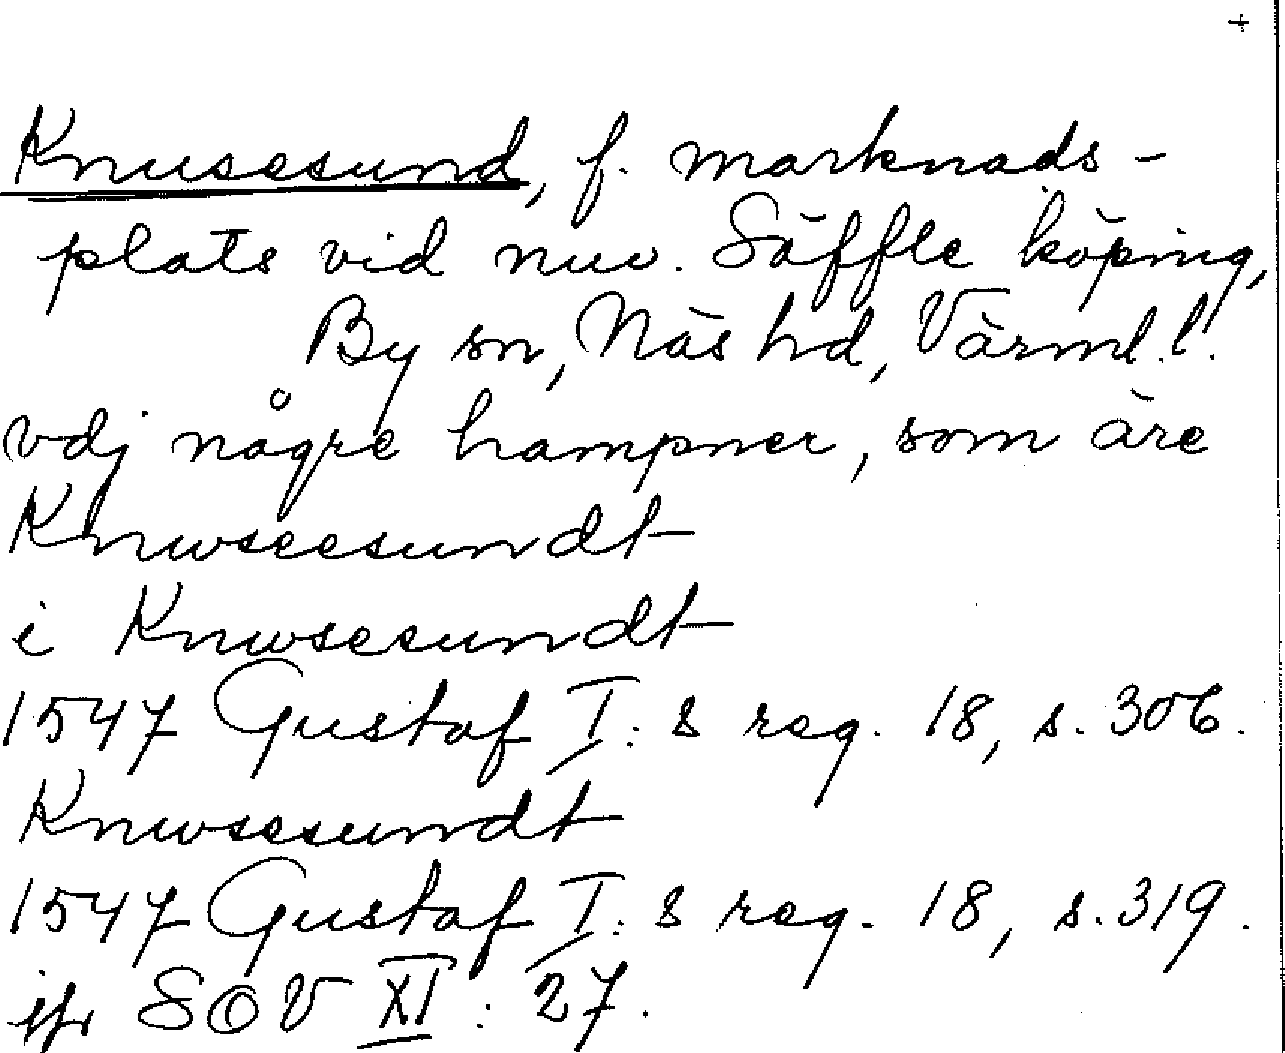 +
Knusesund, f. marknads-
plats vid nuv. Säffle köping,
By sn, Näs hd, Värml. l.
vdj någre hampner, som äre
Knwseesundt
i Knwsesundt
1547 Gustaf I:s reg. 18, s. 306.
Knwsesundt
1547 Gustaf I:s reg. 18, s. 319.
jfr SOV XI: 27.